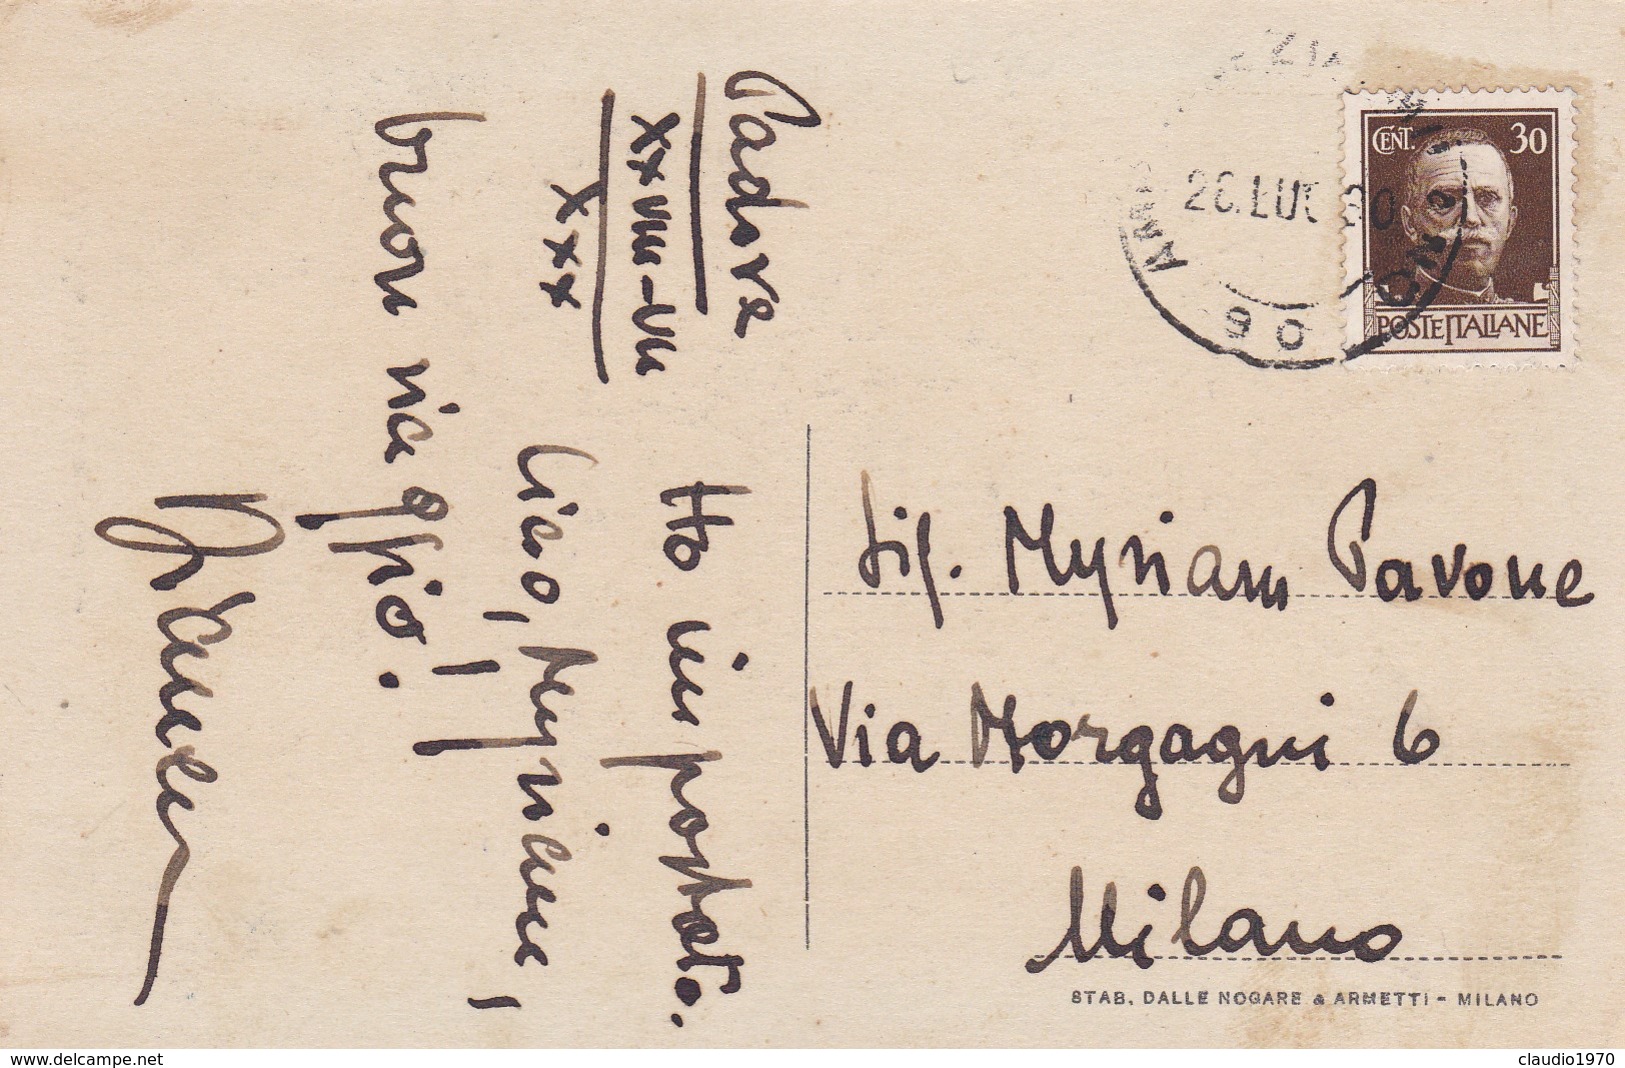 Padova
XXVIII-VII
XXX
Ho impostato.
Ciao, Myriam,
buon viaggio!
CENT. 30
POSTE ITALIANE
26.LUG 30
Sig. Myriam Pavone
Via Morgagni 6
Milano
STAB. DALLE NOGARE & ARMETTI - MILANO
www.delcampe.net
claudio1970